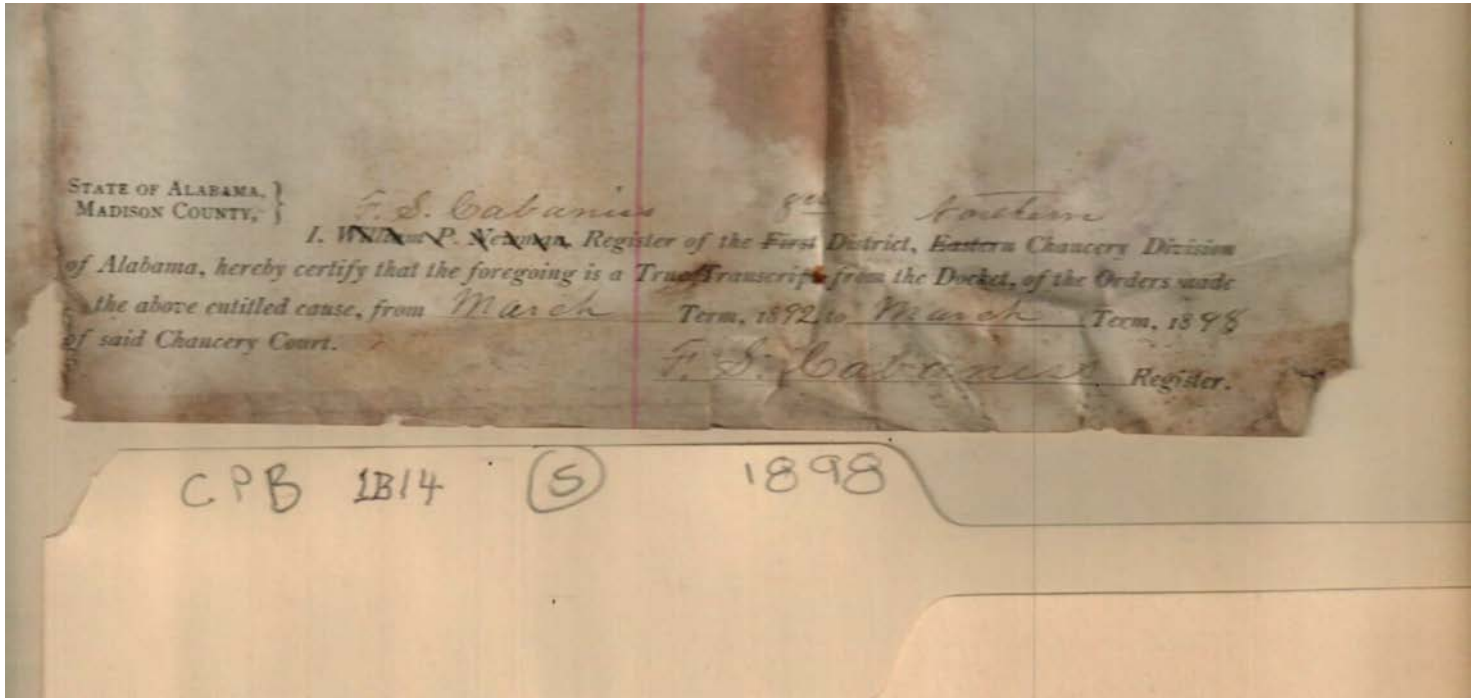 STATE OF ALABAMA, }
MADISON COUNTY, }
F. S. Cabaniss 8th Northern
I, William P. Newman, Register of the First District, Eastern Chancery Division
of Alabama, hereby certify that the foregoing is a True Transcript from the Docket, of the Orders made
the above entitled cause, from March Term, 1892 to March Term, 1898
of said Chancery Court.
F. S. Cabaniss Register.
CPB 1B14 5 1898